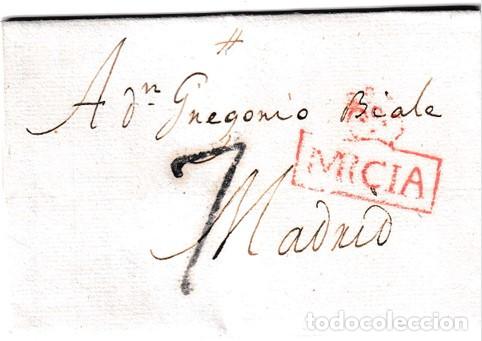 #
A dn Gregorio Biale
MRCIA
7
Madrid
todocoleccion